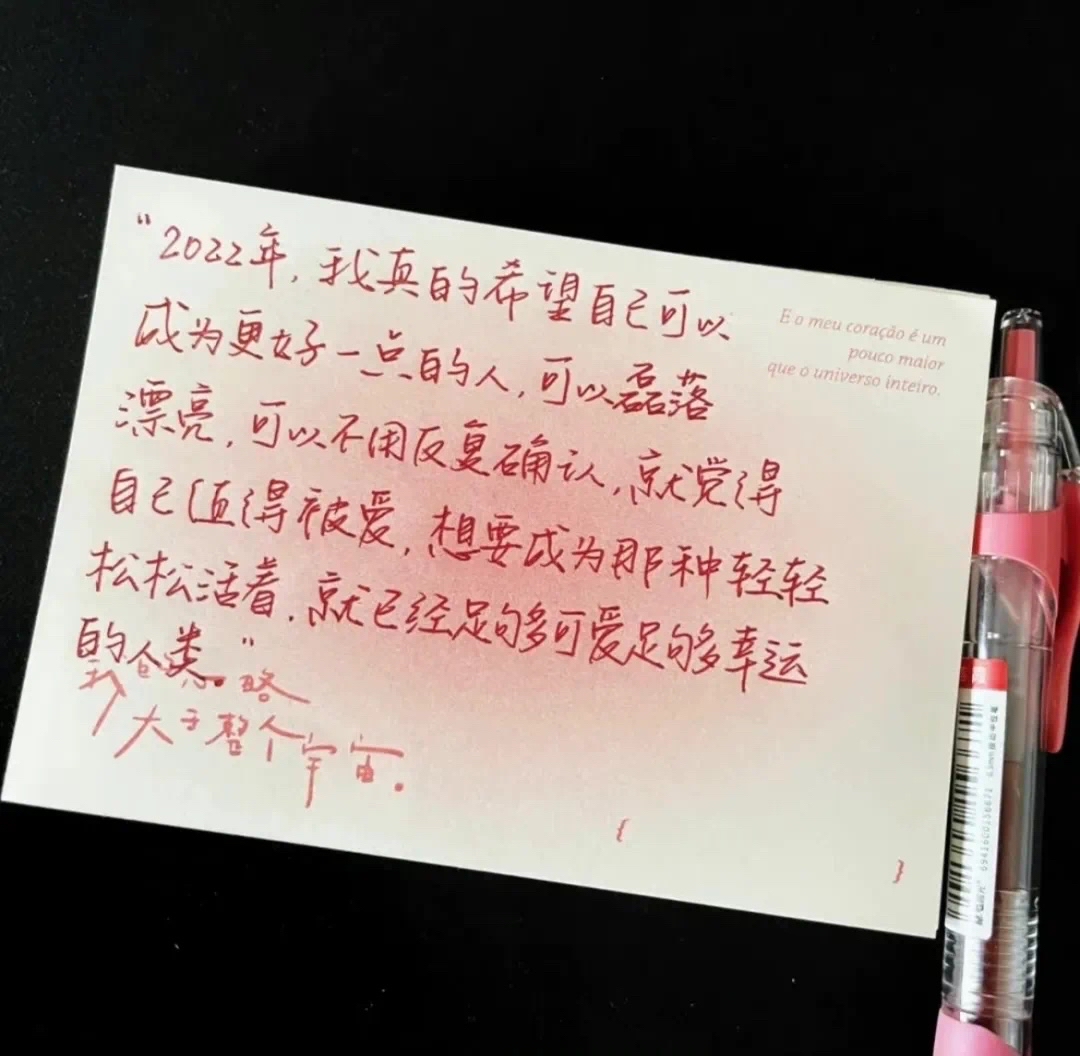 “2022年，我真的希望自己可以
成为更好一点的人，可以磊落
漂亮，可以不用反复确认，就觉得
自己值得被爱，想要成为那种轻轻
松松活着，就已经足够多可爱足够多幸运
的人类。”
我 略
大于整个宇宙。
E o meu coração é um
pouco maior
que o universo inteiro.
{
}
6941600156671